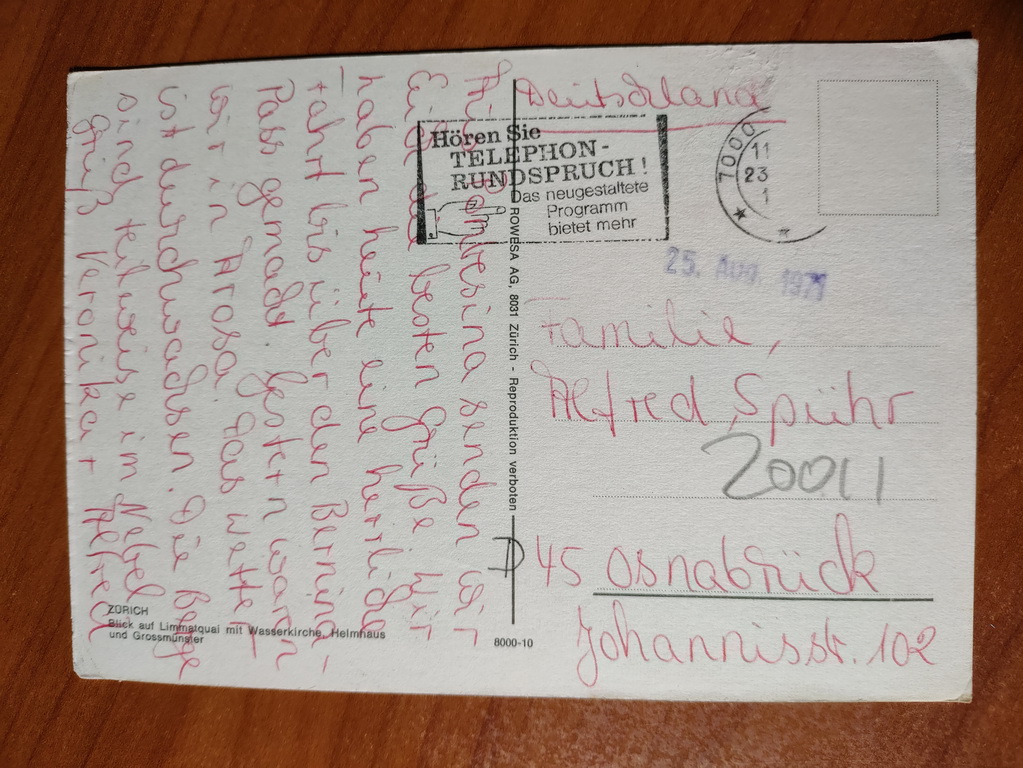 Aus Sambesina senden wir
Euch die besten Grüße. Wir
haben heute eine herrliche
Fahrt bis über den Bernina-
Pass gemacht. Gestern waren
wir in Arosa. Das Wetter
ist durchwachsen. Die Berge
sind teilweise im Nebel
Gruß Veronika + Alfred
Deutschland
Hören Sie
TELEPHON-
RUNDSPRUCH!
Das neugestaltete
Programm
bietet mehr
7000
11
23
1
25. Aug. 1971
ROWESA AG, 8031 Zürich - Reproduktion verboten
Familie,
Alfred Spühr
20011
D 45 Osnabrück
Johannisstr. 102
ZÜRICH
Blick auf Limmatquai mit Wasserkirche, Helmhaus
und Grossmünster
8000-10